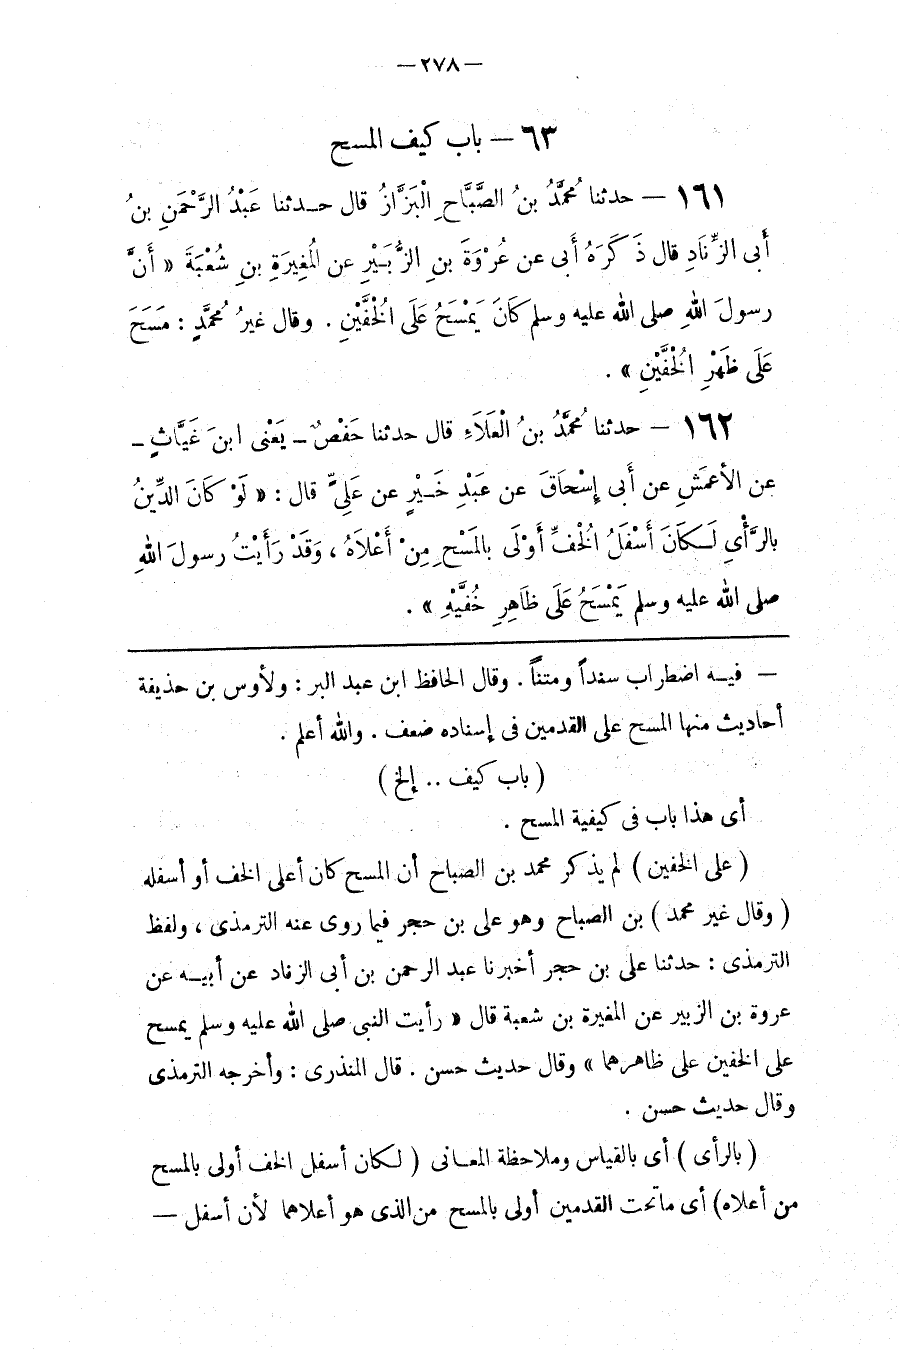 — ٢٧٨ —
٦٣ — باب كيف المسح
١٦١ — حدثنا مُحَمَّدُ بنُ الصَّبَّاحِ الْبَزَّازُ قال حـدثنا عَبْدُ الرَّحْمَنِ بنُ
أَبى الزِّنَادِ قال ذَكَرَهُ أَبى عن عُرْوَةَ بنِ الزُّبَيْرِ عن الْمُغِيرَةِ بنِ شُعْبَةَ « أَنَّ
رسولَ اللهِ صلى الله عليه وسلم كَانَ يَمْسَحُ عَلَى الْخُفَّيْنِ . وقال غيرُ مُحمَّدٍ : مَسَحَ
عَلَى ظَهْرِ الْخُفَّيْنِ » .
١٦٢ — حدثنا مُحمَّدُ بنُ الْعَلَاَءِ قال حدثنا حَفْصٌ ـ يَعْنى ابنَ غَيَّاثٍ ـ
عن الأعمَشِ عن أَبى إِسْحَاقَ عن عَبْدِ خَـيْرٍ عن عَلِىٍّ قال : « لَوْ كَانَ الدِّينُ
بالرَّأْىِ لَـكَانَ أَسْفَلُ الْخُفِّ أَوْلَى بالمَسْحِ مِنْ أَعْلاَهُ ، وَقَدْ رَأَيْتُ رسولَ اللهِ
صلى الله عليه وسلم يَمْسَحُ عَلَى ظَاهِرِ خُفَّيْهِ » .
— فيـه اضطراب سنداً ومتناً . وقال الحافظ ابن عبد البر : ولأوس بن حذيفة
أحاديث منها المسح على القدمين فى إسناده ضعف . والله أعلم .
( باب كيف .. إلخ )
أى هذا باب فى كيفية المسح .
( على الخفين ) لم يذكر محمد بن الصباح أن المسح كان أعلى الخف أو أسفله
( وقال غير محمد ) بن الصباح وهو على بن حجر فيما روى عنه الترمذى ، ولفظ
الترمذى : حدثنا على بن حجر أخبرنا عبد الرحمن بن أبى الزناد عن أبيـه عن
عروة بن الزبير عن المغيرة بن شعبة قال « رأيت النبى صلى الله عليه وسلم يمسح
على الخفين على ظاهرهما » وقال حديث حسن . قال المنذرى : وأخرجه الترمذى
وقال حديث حسن .
( بالرأى ) أى بالقياس وملاحظة المعـانى ( لـكان أسفل الخف أولى بالمسح
من أعلاه) أى ماتحت القدمين أولى بالمسح من الذى هو أعلاهما لأن أسفل —